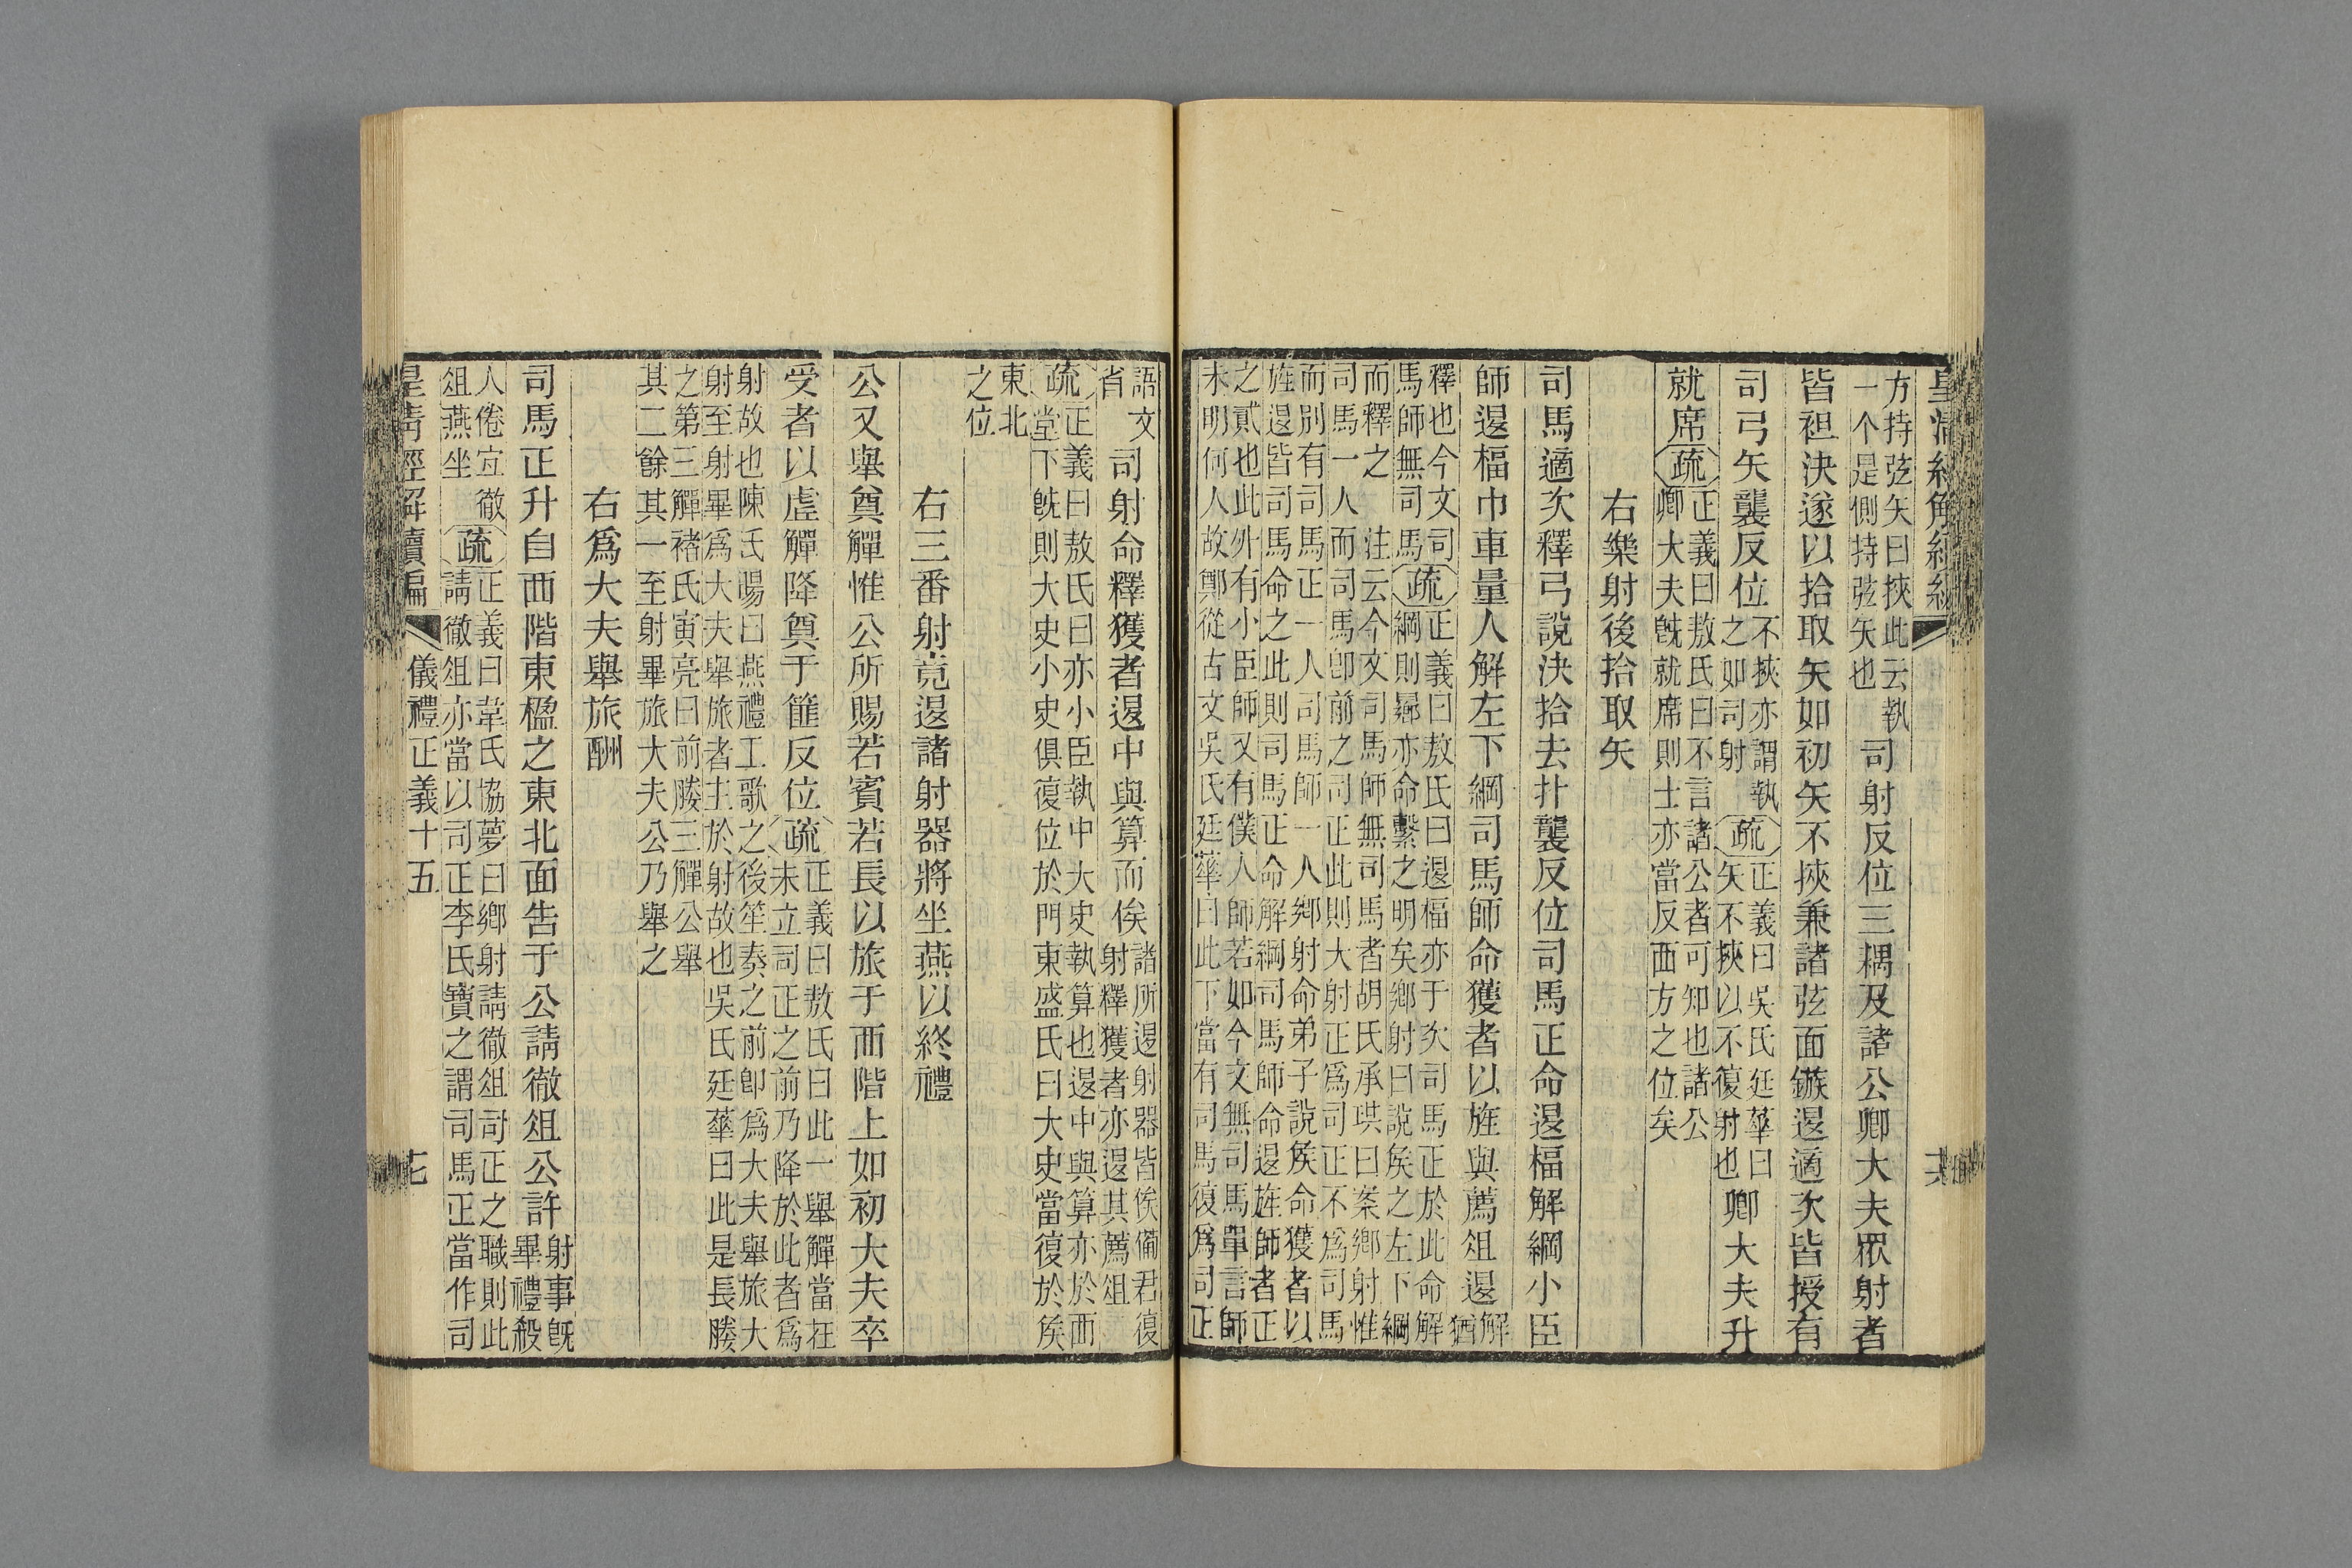 方持弦矢曰挾此云執
一个是側持弦矢也
司射反位三耦及諸公卿大夫眾射者
皆袒決遂以拾取矢如初矢不挾兼諸弦面鏃退適次皆授有
司弓矢襲反位
不挾亦謂執
之如司射
疏
正義曰吳氏廷華曰
矢不挾以不復射也
卿大夫升
就席
疏
正義曰敖氏曰不言諸公者可知也諸公
卿大夫旣就席則士亦當反西方之位矣
右樂射後拾取矢
司馬適次釋弓說決拾去扑襲反位司馬正命退楅解綱小臣
師退楅巾車量人解左下綱司馬師命獲者以旌與薦俎退
解
猶
釋也今文司
馬師無司馬
疏
正義曰敖氏曰退楅亦于次司馬正於此命解
綱則曏亦命繫之明矣鄉射曰說矦之左下綱
而釋之　注云今文司馬師無司馬者胡氏承珙曰案鄉射惟
司馬一人而司馬卽前之司正此則大射正爲司正不爲司馬
而別有司馬正一人司馬師一人鄉射命弟子說矦命獲者以
旌退皆司馬命之此則司馬正命解綱司馬師命退旌師者正
之貳也此外有小臣師又有僕人師若如今文無司馬單言師
未明何人故鄭從古文吳氏廷華曰此下當有司馬復爲司正
語文
省
司射命釋獲者退中與算而俟
諸所退射器皆俟備君復
射釋獲者亦退其薦俎
疏
正義曰敖氏曰亦小臣執中大史執算也退中與算亦於西
堂下旣則大史小史俱復位於門東盛氏曰大史當復於矦
東北
之位
右三番射竟退諸射器將坐燕以終禮
公又舉奠觶惟公所賜若賓若長以旅于西階上如初大夫卒
受者以虛觶降奠于篚反位
疏
正義曰敖氏曰此一舉觶當在
未立司正之前乃降於此者爲
射故也陳氏暘曰燕禮工歌之後笙奏之前卽爲大夫舉旅大
射至射畢爲大夫舉旅者主於射故也吳氏廷華曰此是長媵
之第三觶褚氏寅亮曰前媵三觶公舉
其二餘其一至射畢旅大夫公乃舉之
右爲大夫舉旅酬
司馬正升自西階東楹之東北面告于公請徹俎公許
射事旣
畢禮殺
人倦宜徹
俎燕坐
疏
正義曰韋氏協夢曰鄉射請徹俎司正之職則此
請徹俎亦當以司正李氏寶之謂司馬正當作司
皇清經解續編
儀禮正義十五